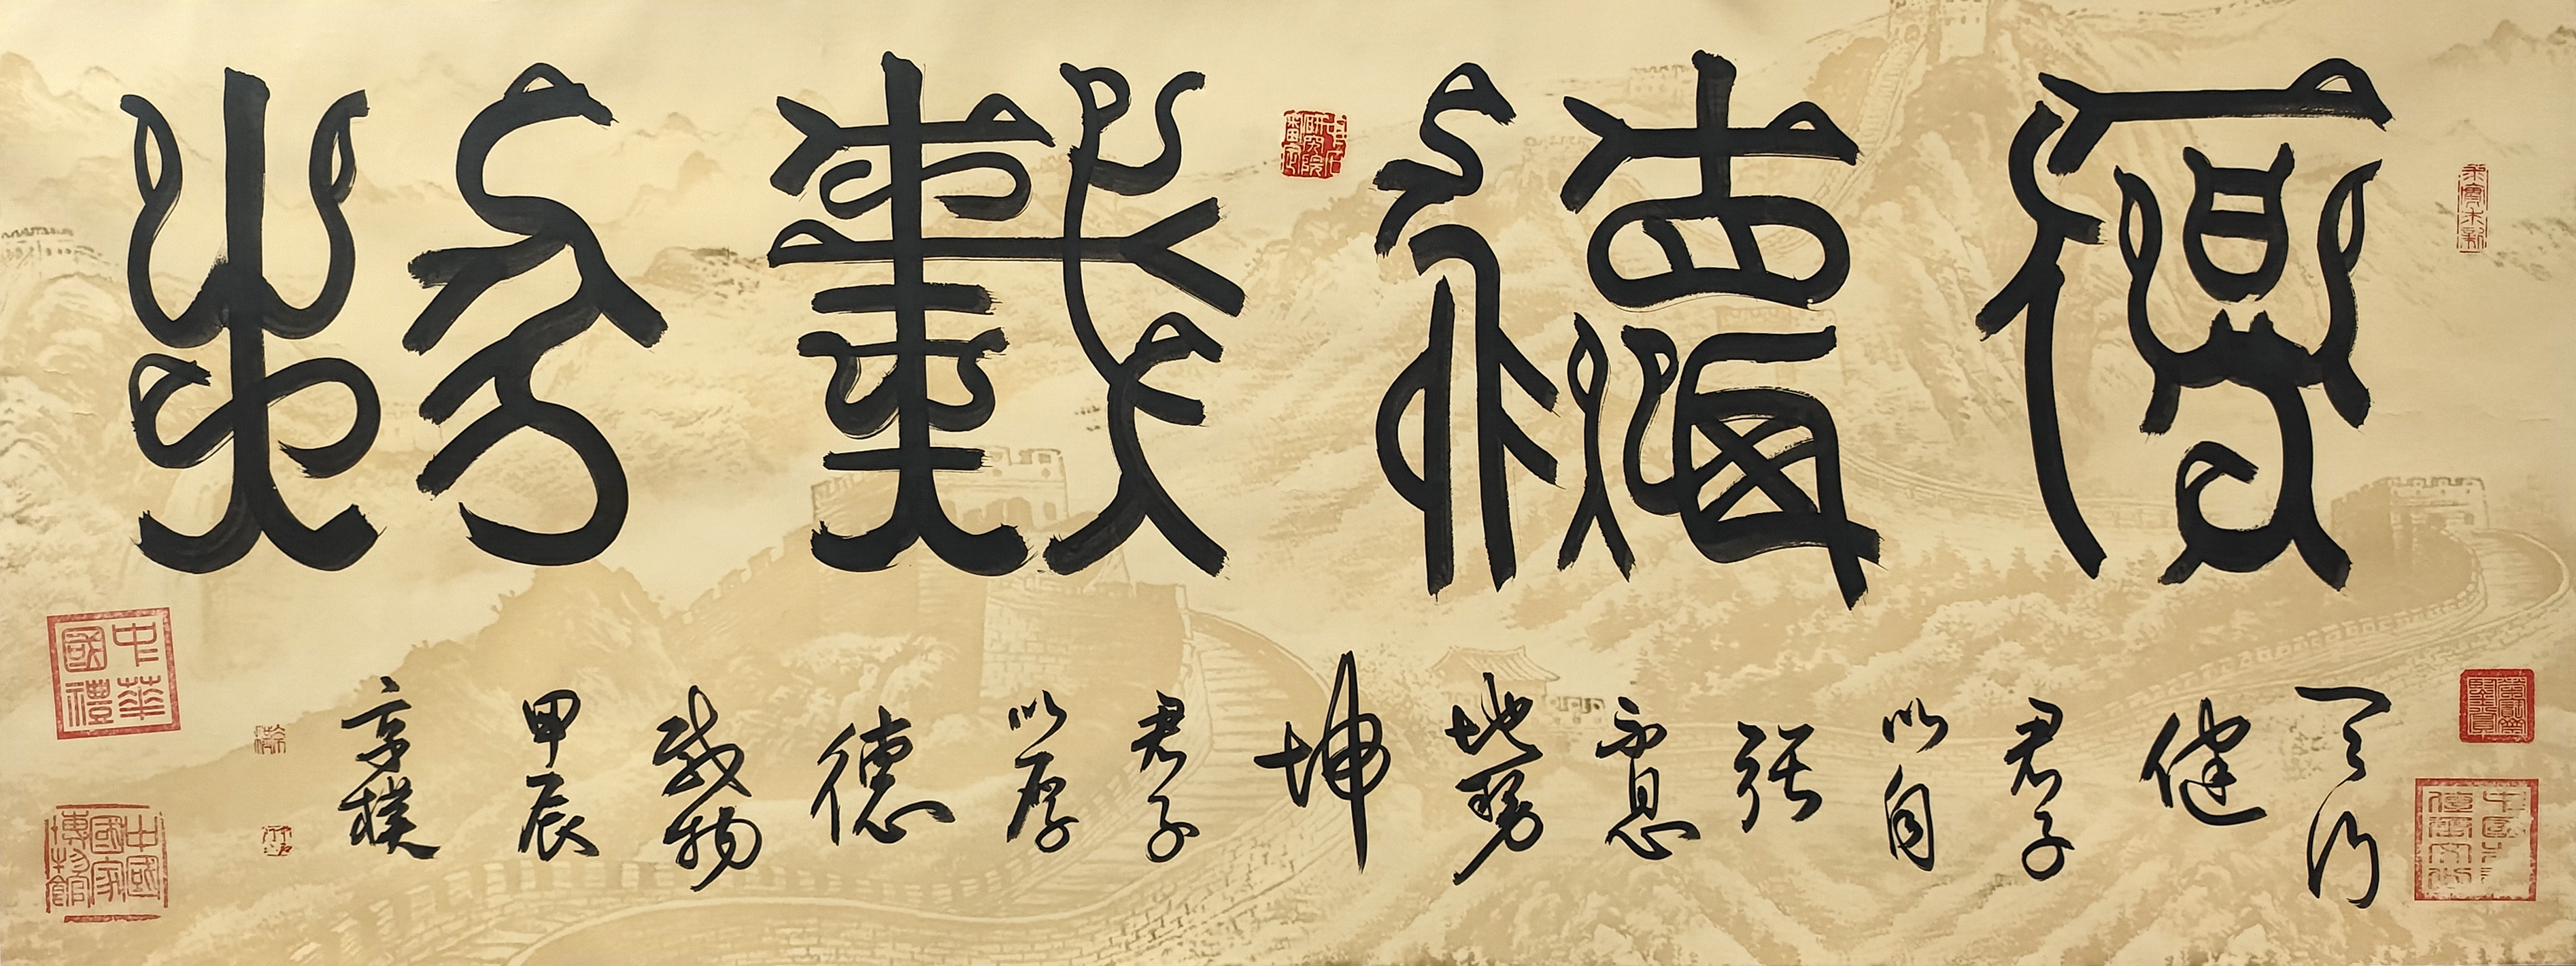 厚德載物
天行
健
君子
以自
强
不息
地势
坤
君子
以厚
德
载物
甲辰
中華國禮
中國國家博物館